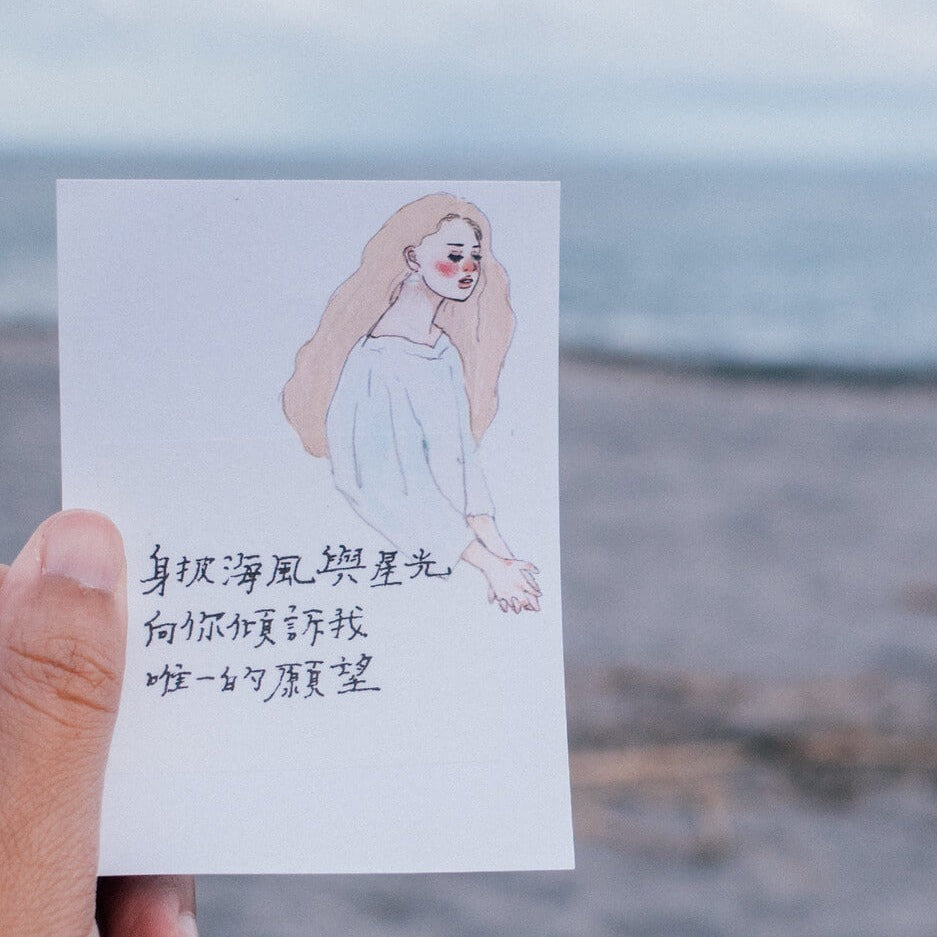 身披海風與星光
向你傾訴我
唯一的願望